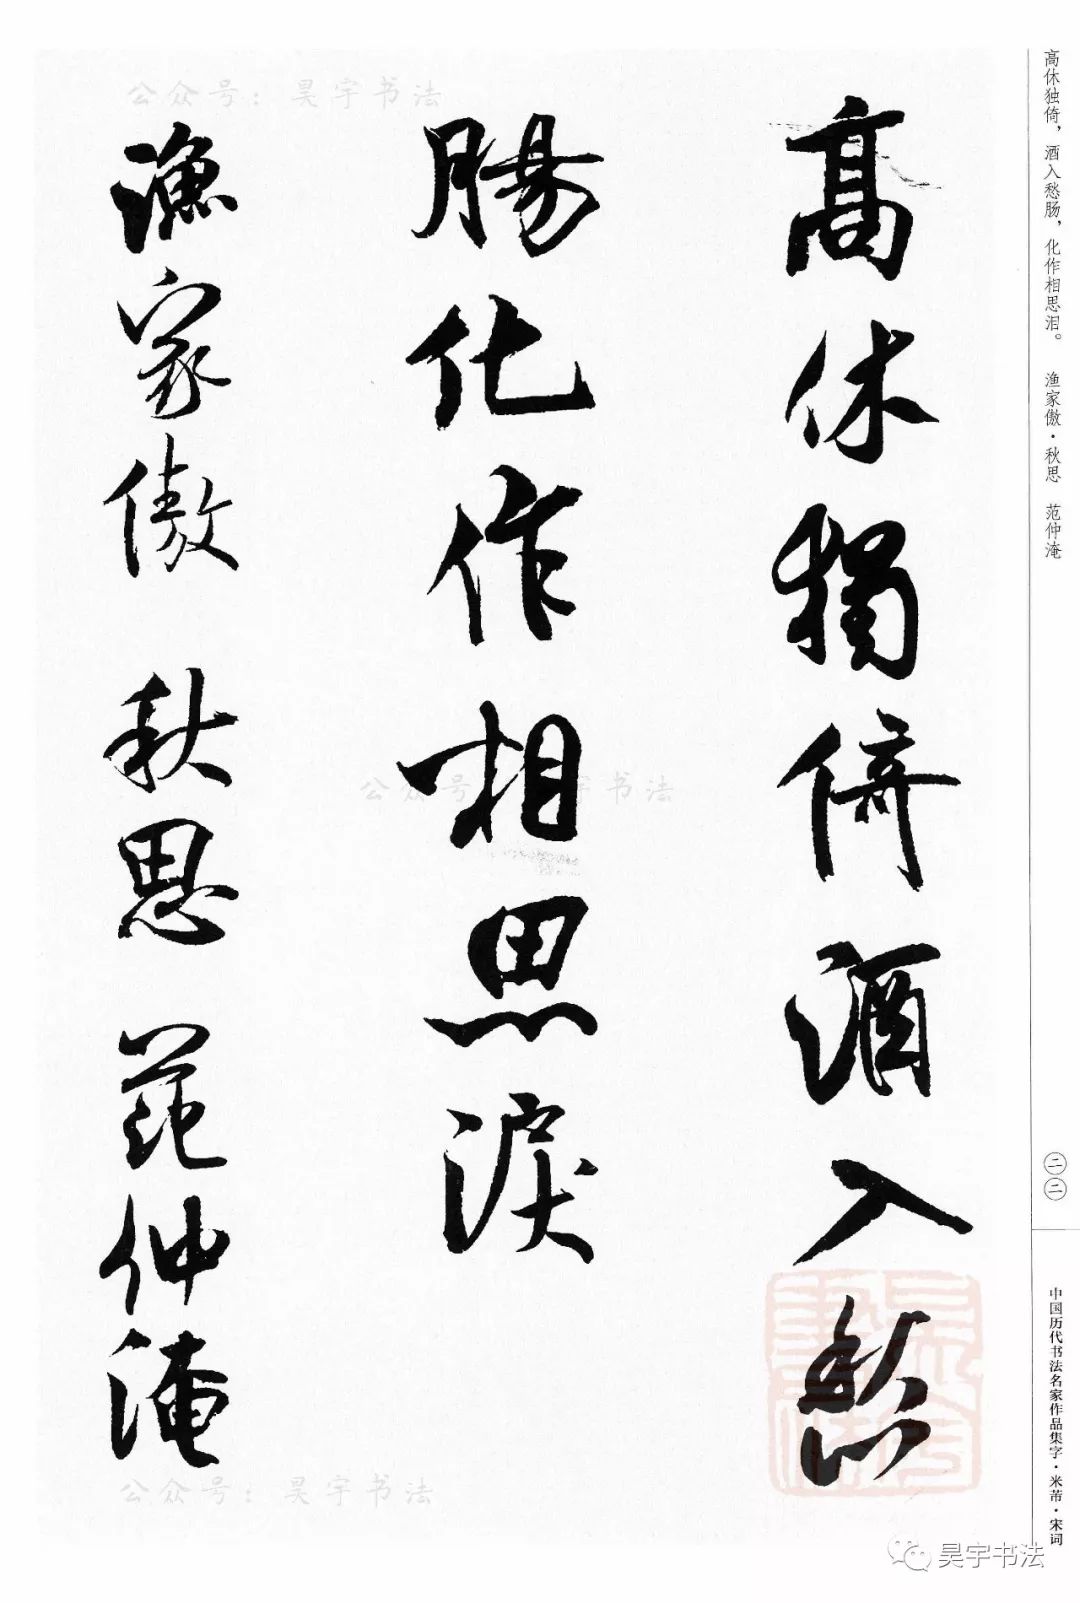 高休独倚，酒入愁肠，化作相思泪。　渔家傲·秋思　范仲淹
高休獨倚酒入愁
腸化作相思淚
漁家傲 秋思 范仲淹
二二
中国历代书法名家作品集字·米芾·宋词
公众号：昊宇书法
公众号：昊宇书法
公众号：昊宇书法
昊宇书法